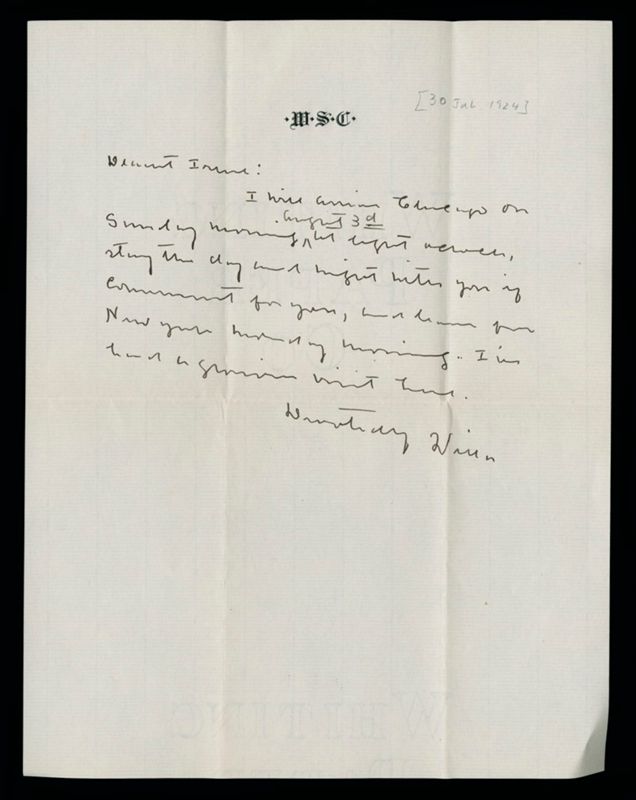 [30 Jul 1924]
·W·S·C·
Dearest Irene:
I will arrive Chicago on
August 3d
Sunday morning, at eight
stay the day and night with you if
convenient for you, and leave for
New York Monday morning. I've
had a glorious visit here.
Devotedly Willa
WHITING